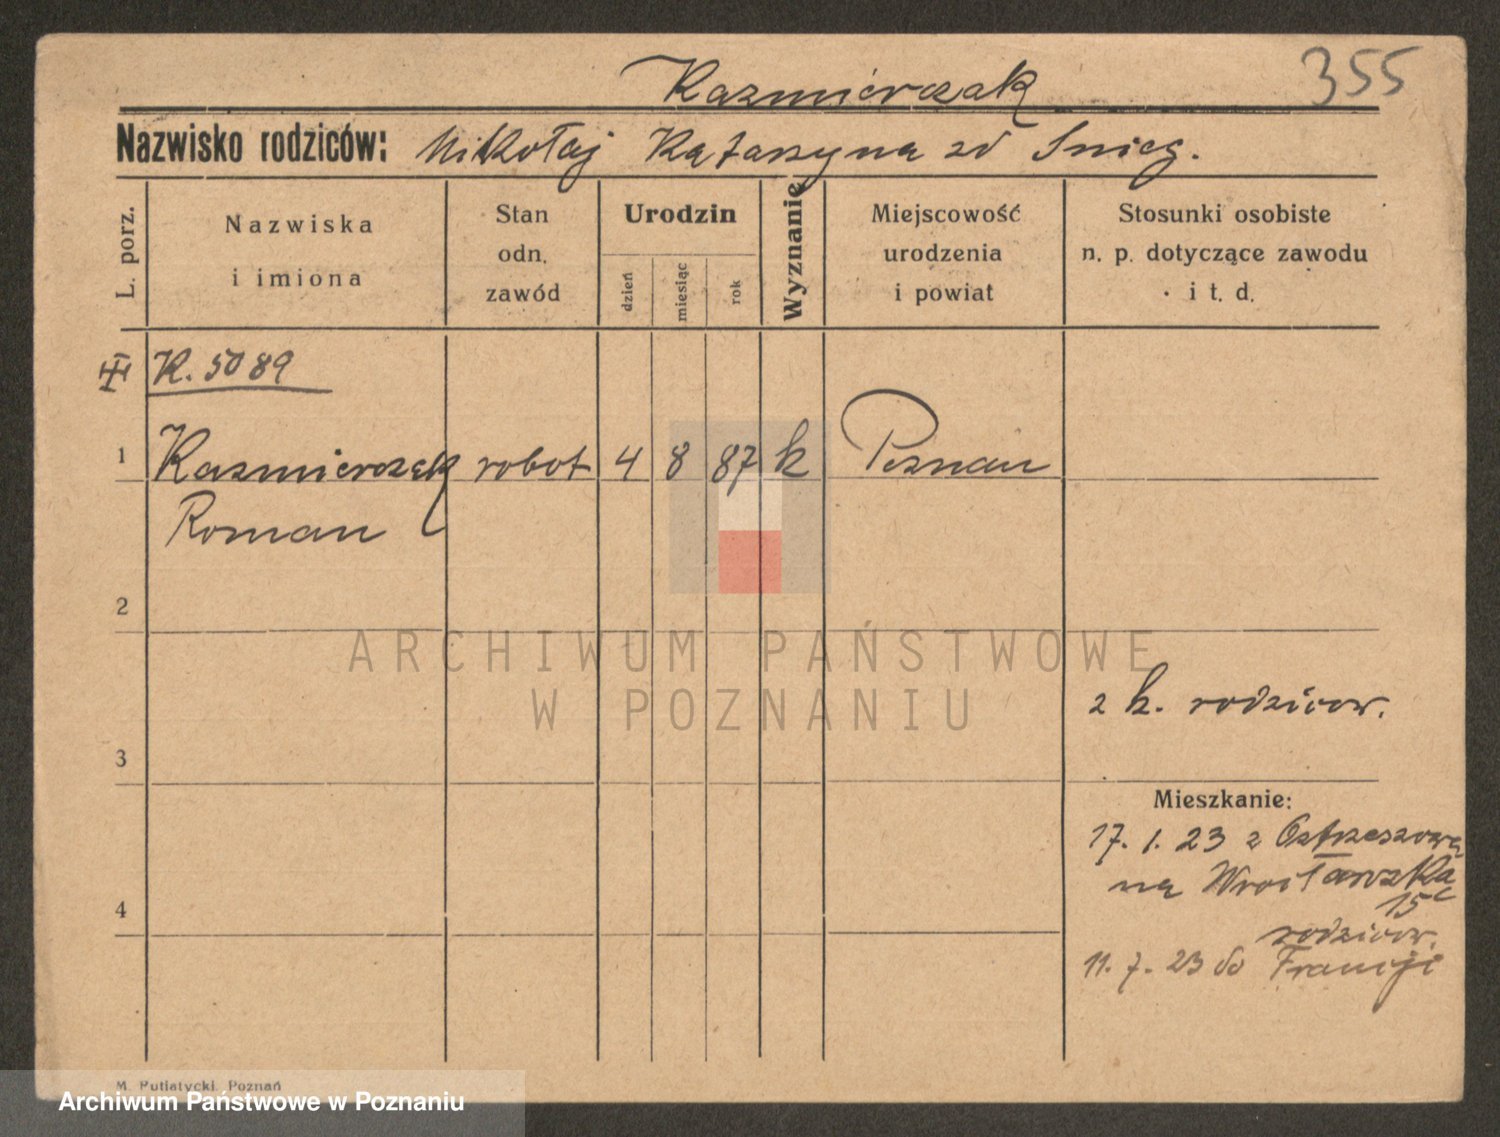 Kazmierczak 355
Nazwisko rodziców: Mikołaj Katarzyna zd Snieg.
L. porz.
Nazwiska
i imiona
Stan
odn.
zawód
Urodzin
dzień
miesiąc
rok
Wyznanie
Miejscowość
urodzenia
i powiat
Stosunki osobiste
n. p. dotyczące zawodu
i t. d.
K. 5089
1 Kazmierczak robot 4 8 87 k Poznan
Roman
2
ARCHIWUM PAŃSTWOWE
W POZNANIU
z k. rodzicow.
3
Mieszkanie:
17. 1. 23 z Ostrzeszowa
na Wrocławska
15
rodzicow.
4
11. 7. 23 do Francji
M. Putiatycki, Poznań
Archiwum Państwowe w Poznaniu